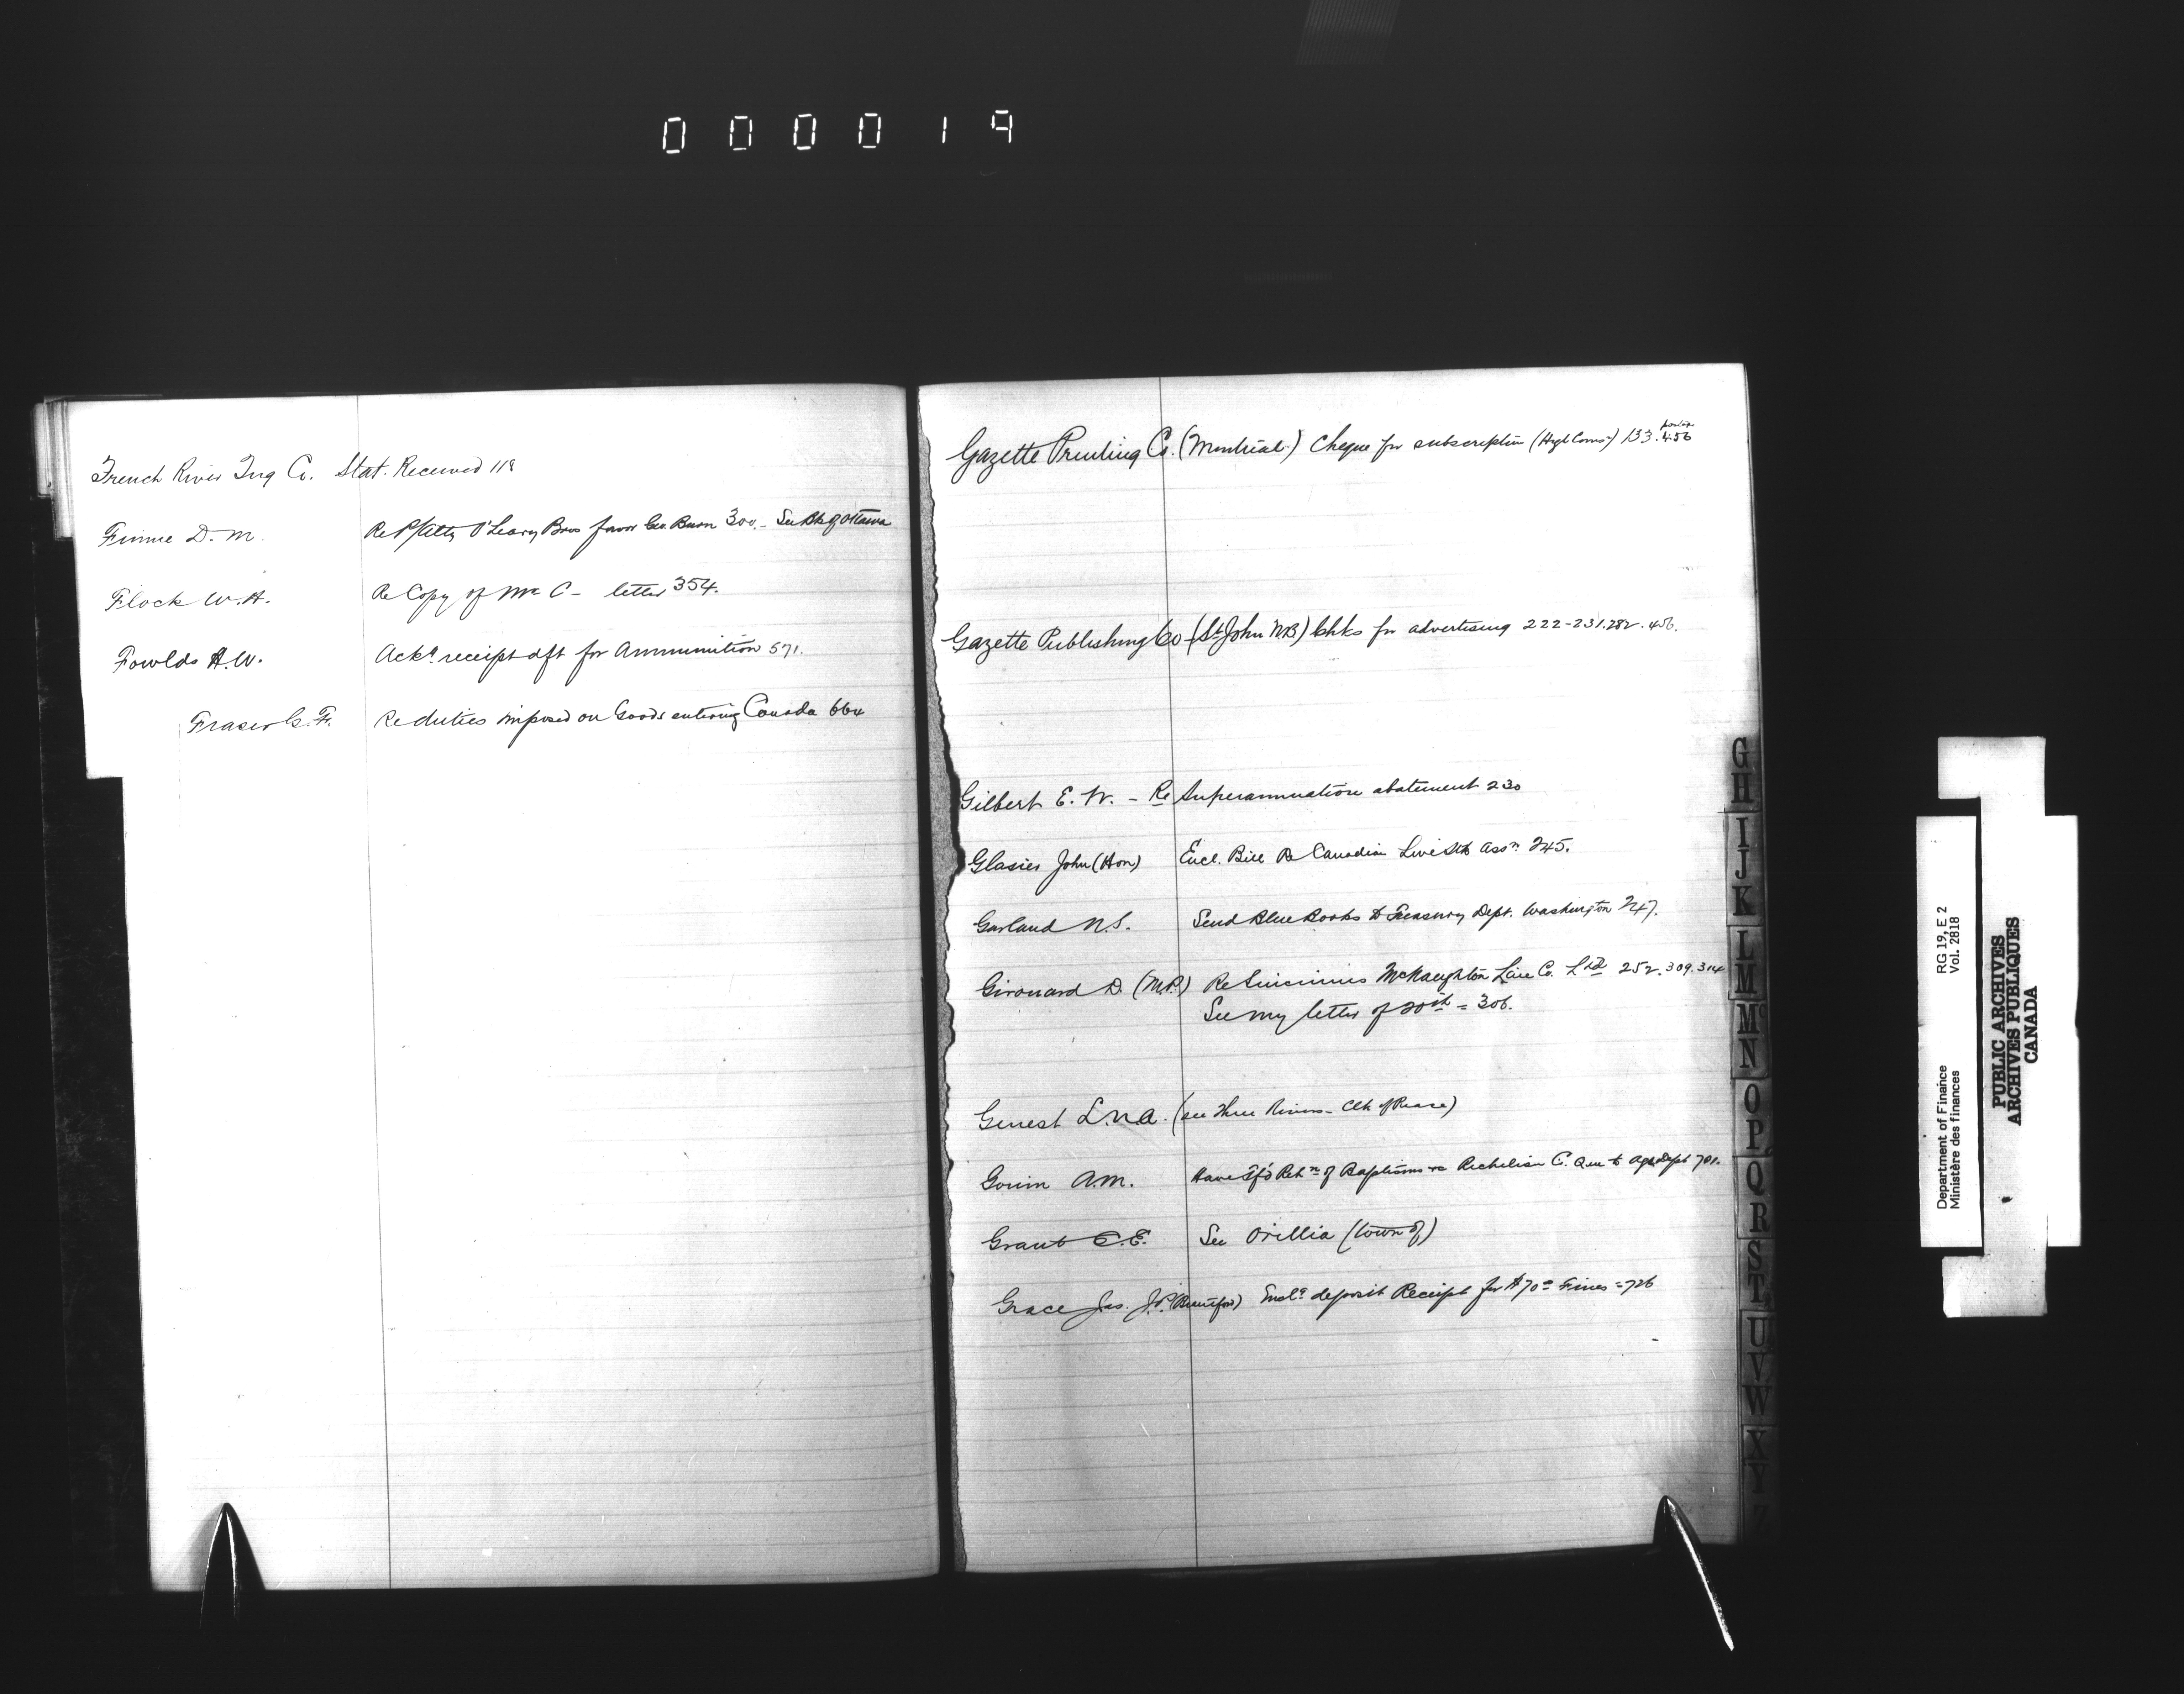 000019
French River Imp Co. Stat. Received 118
Finnie D. M. Re P/Atty O'Leary Bros favor Geo. Burn 300. - See Bk of Ottawa
Flock W. A. Re Copy of Mr C - letter 354.
Fowlds A. W. Ackg receipt dft for Ammunition 571.
Fraser G. F. Re duties imposed on Goods entering Canada 664
Gazette Printing Co. (Montreal) Cheque for subscription (High Comr) 133. 456
Gazette Publishing Co (St John NB) Chks for advertising 222-231.282.456.
Gilbert E. W. - Re Superannuation abatement 230
Glasier John (Hon) Encl. Bill Re Canadian Live Stk Assn 245.
Garland N. S. Send Blue Books to Treasury Dept. Washington 247.
Girouard D. (M.P.) Re McNaughton Line Co. Ltd 252.309.314
See my letter of 20th = 306.
Genest L. U. A. (see Three Rivers - Clk of Peace)
Gouin A. M. Have Retn of Baptisms re Richelieu C. Que to Agr Dept 701.
Grant C. E. See Orillia (town of)
Grace Jas. J.P. (Brantford) Encl deposit Receipt for $70 = Fines = 726
G
H
I
J
K
L
M
Mc
N
O
P
Q
R
S
T
U
V
W
X
Y
Z
Department of Finance RG 19, E 2
Ministère des finances Vol. 2818
PUBLIC ARCHIVES
ARCHIVES PUBLIQUES
CANADA